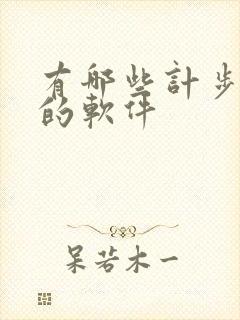 有哪些計步
的軟件
呆若木一